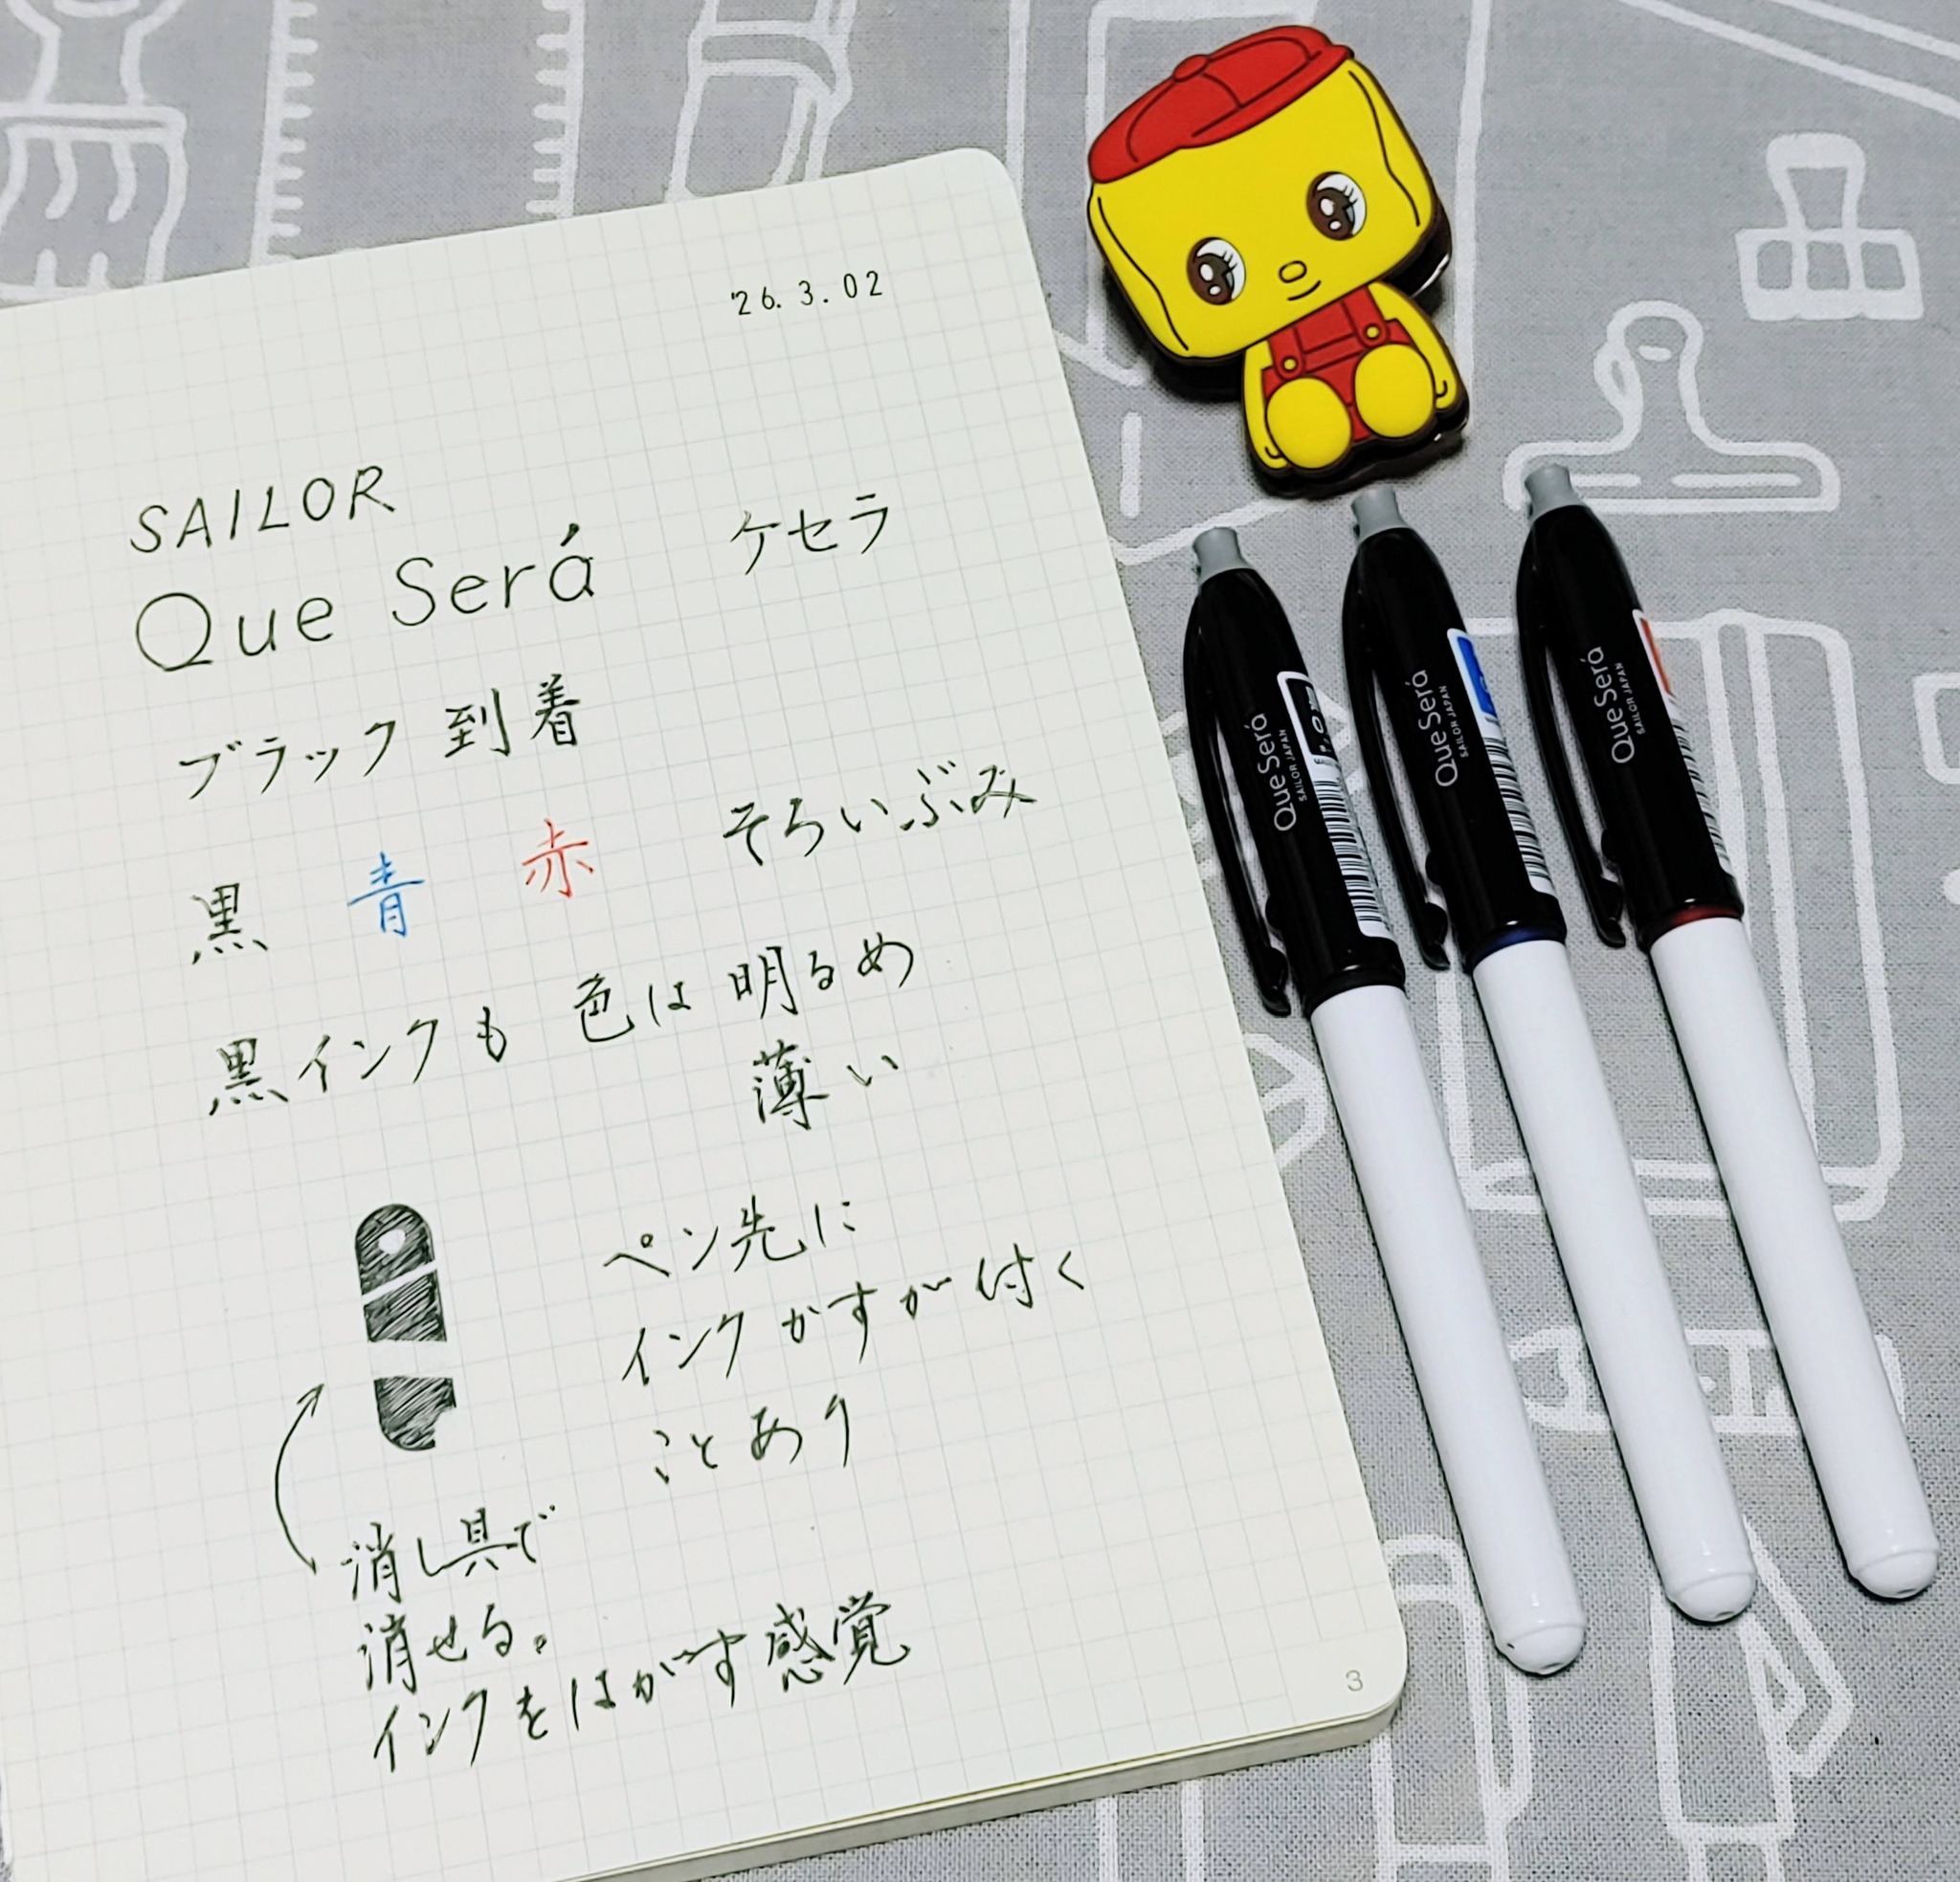 '26.3.02
SAILOR
Que Será ケセラ
ブラック到着
黒 青 赤 そろいぶみ
黒インクも 色は 明るめ
薄い
ペン先に
インクかすが付く
ことあり
消し具で
消せる。
インクをはがす感覚
3
Que Será
SAILOR JAPAN
1.0
Que Será
SAILOR JAPAN
Que Será
SAILOR JAPAN